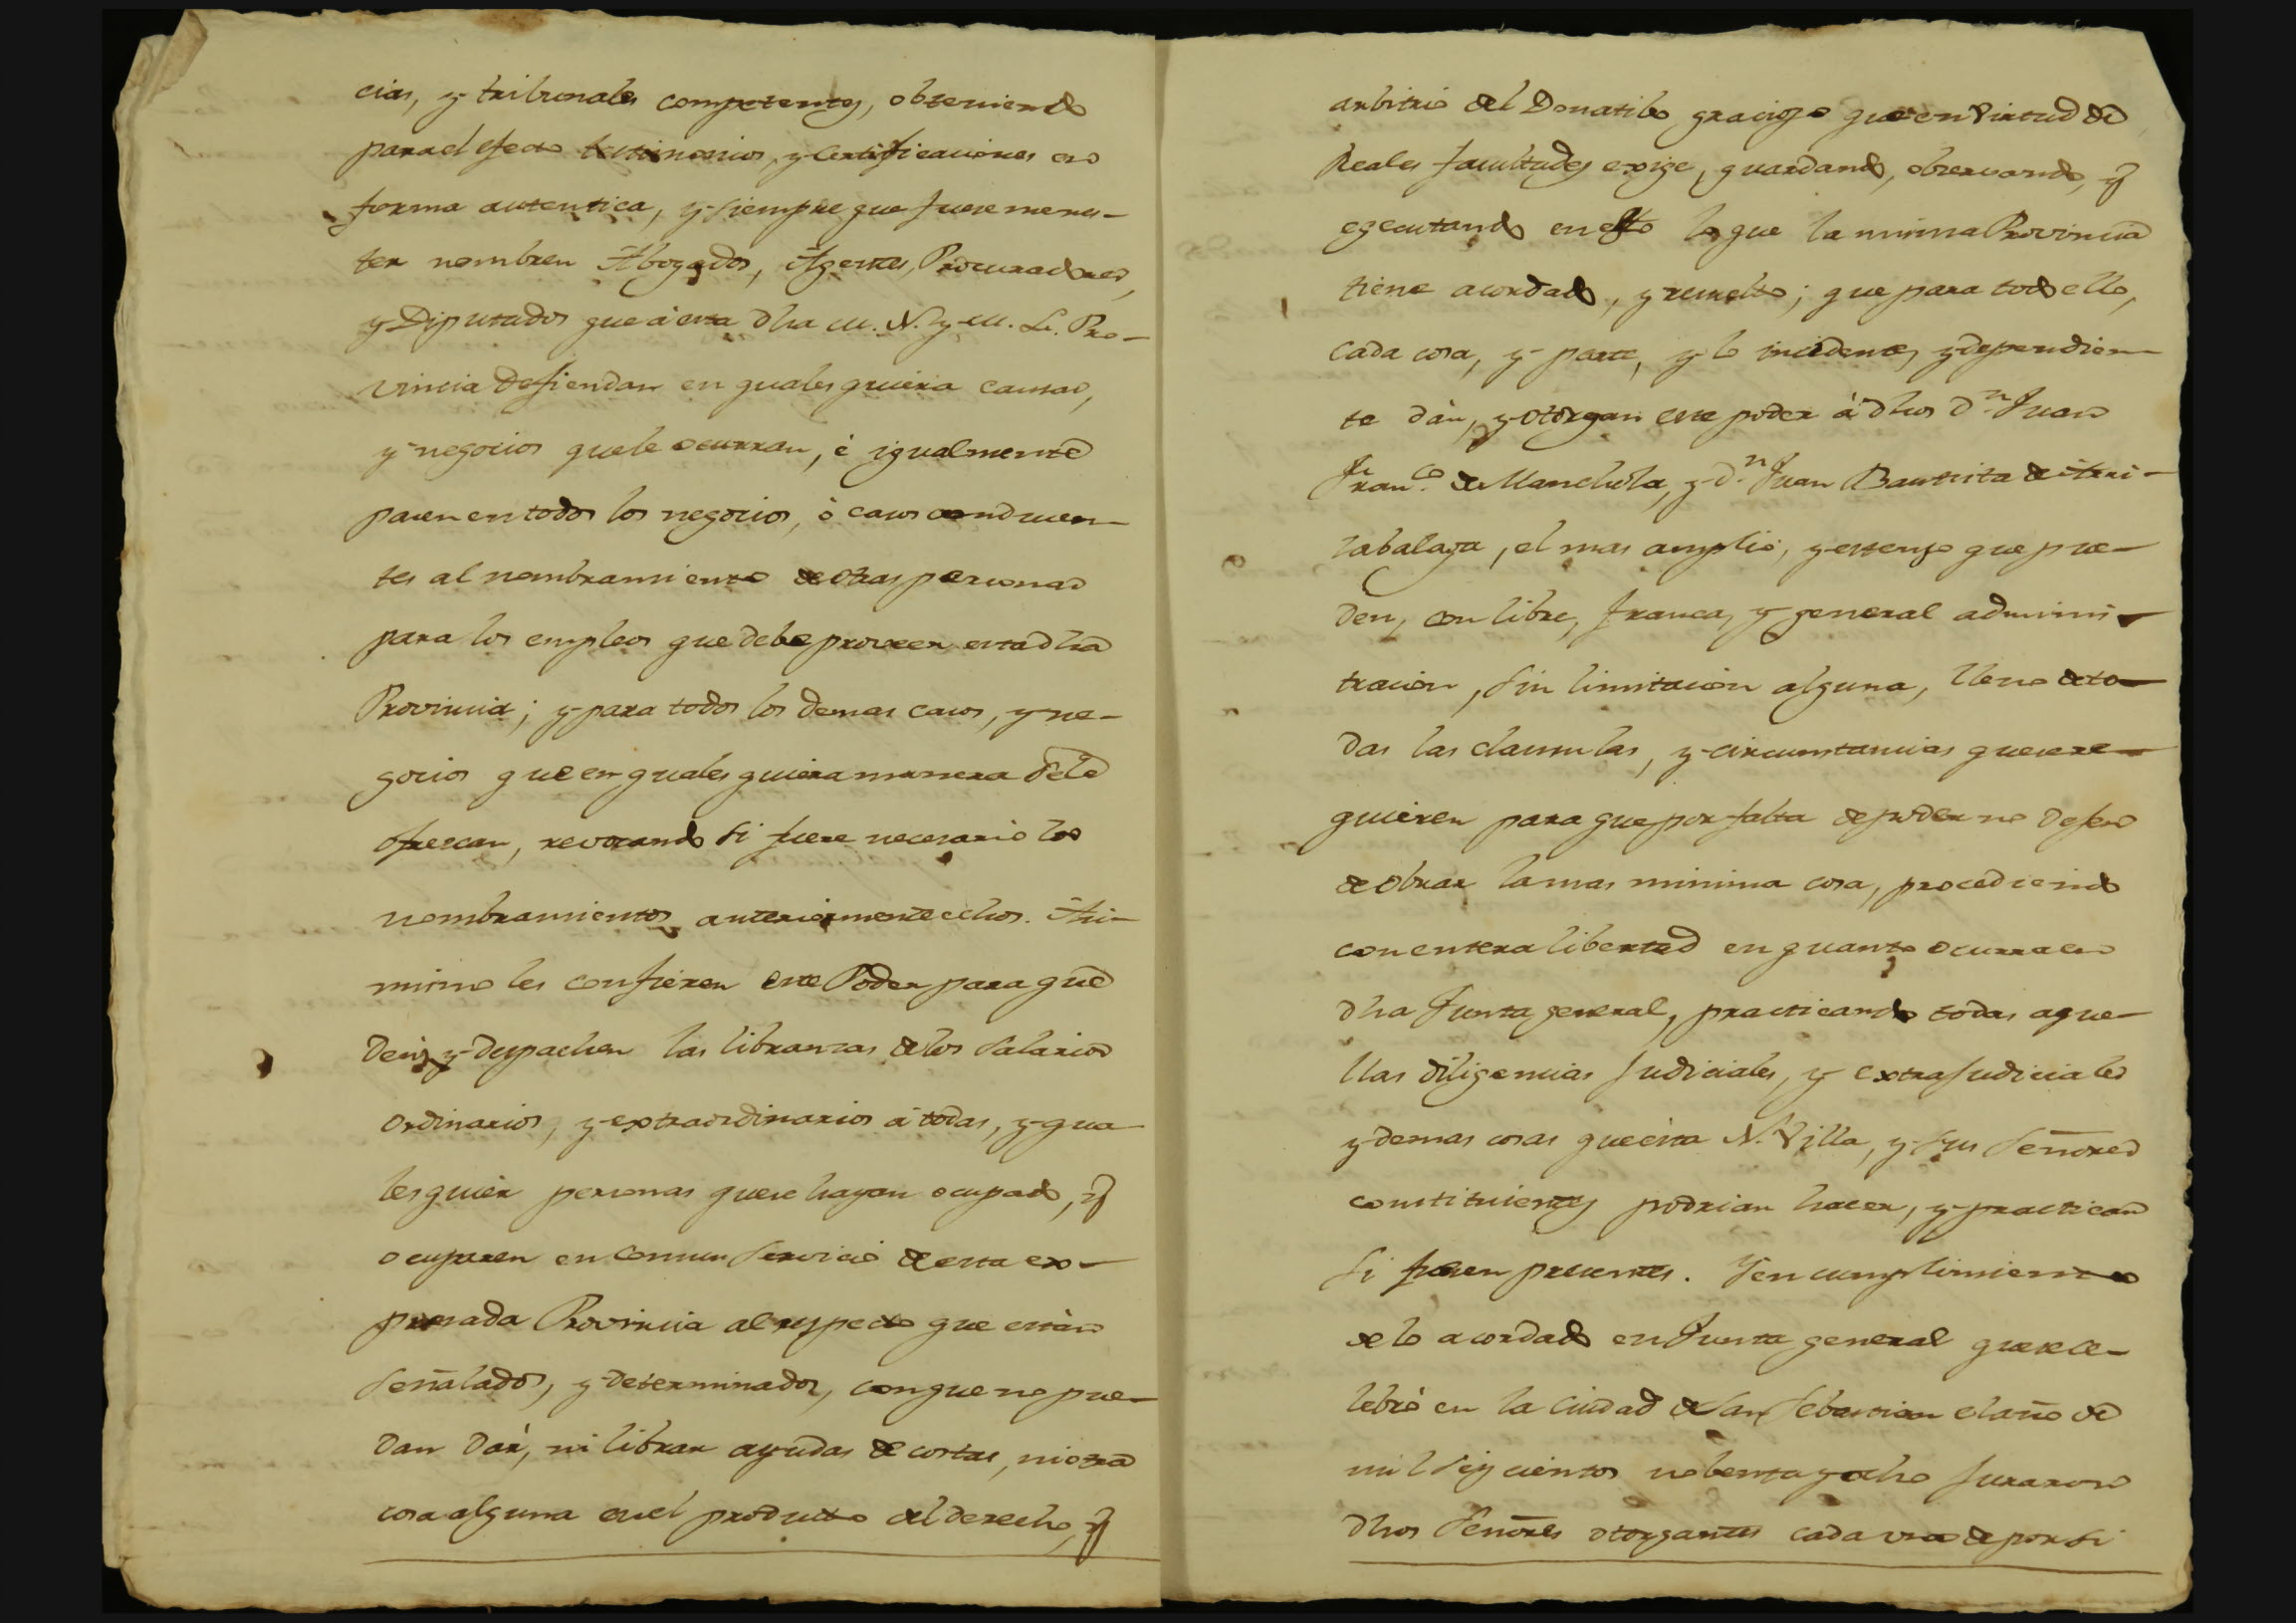 cias, y tribunales competentes, obteniendo
para el efecto testimonios, y Certificaciones en
forma autentica, y siempre que fuere menes-
ter nombren Abogados, Agentes, Procuradores,
y Diputados que à esta dha M. N. y M. L. Pro-
vincia defiendan en qualesquiera causas,
y negocios que le ocurran, è igualmente
pasen en todos los negocios, ò casos conducen-
tes al nombramiento de otras personas
para los empleos que debe proveer esta dha
Provincia; y para todos los demas casos, y ne-
gocios que en qualesquiera manera se le
ofrezcan, revocando si fuere necesario los
nombramientos anteriormente echos. Asi-
mismo les confieren este Poder para que
den, y despachen las libranzas de los Salarios
ordinarios, y extraordinarios à todas, y qua
lesquier personas que se hayan ocupado, y
ocuparen en comun Servicio de esta ex-
presada Provincia al respecto que estàn
señalados, y determinados, con que no pue-
dan dàr, ni librar ayudas de costas, ni otra
cosa alguna en el producto del derecho, y
arbitrio del Donatibo gracioso que en virtud de
Reales facultades exige, guardando, observando, y
egecutando en esto lo que la misma Provincia
tiene acordado, y resuelto; que para todo ello,
cada cosa, y parte, y lo incidente, y dependien-
te dàn, y otorgan este poder à dhos Dn. Juan
Franco. de Manchola, y Dn. Juan Bautista de Arri-
zabalaga, el mas amplio, y extenso que pue-
den, con libre, franca, y general adminis-
tracion, sin limitacion alguna, lleno de to-
das las clausulas, y circunstancias que se re-
quieren para que por falta de poder no dejen
de obrar la mas minima cosa, procediendo
con entera libertad en quanto ocurra en
dha Junta general, practicando todas aque-
llas diligencias Judiciales, y extrajudiciales
y demas cosas que èsta N. Villa, y sus Señores
constituientes podrian hacer, y practicar
si fuesen presentes. Y en cumplimiento
de lo acordado en Junta general que se ce-
lebrò en la Ciudad de San Sebastian el año de
mil seiscientos nobenta y ocho Juraron
dhos Señores otorgantes cada uno de por si